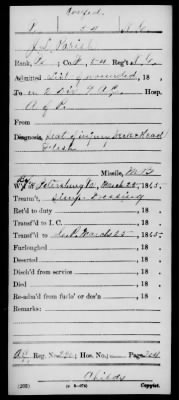 Confed.
P 54 N.C.
J. L. Parish
Rank, Co. Reg't N.C.
Admitted List of wounded, 18 .
To in 2 Div 9 A.C. Hosp.
A of P.
From
Diagnosis, Seat of injury Head
Flesh
Missile, M.B.
Petersburg Va, March 25, 1865.
Treatm't, Simple Dressing
Ret'd to duty , 18 .
Transf'd to I. C. , 18 .
Transf'd to March 25 , 1865
Furloughed , 18 .
Deserted , 18 .
Disch'd from service , 18 .
Died , 18 .
Re-adm'd from furlo' or des'n , 18 .
Remarks:
Reg. No. Hos. No. Page
Childs
(203) Copyist.